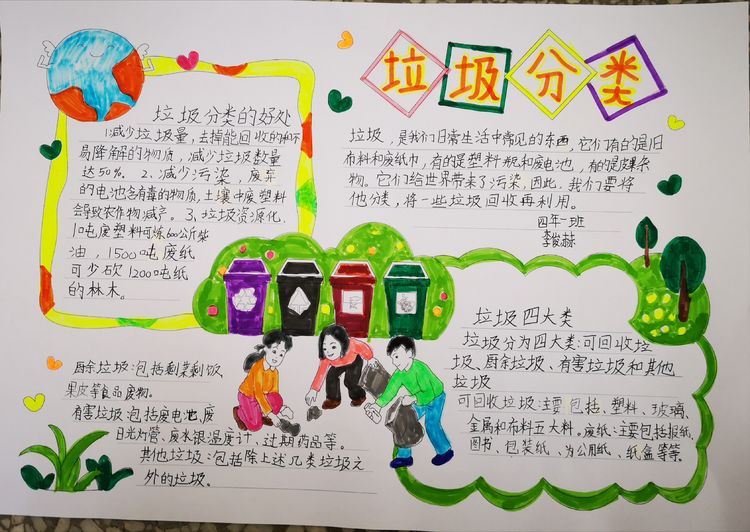 垃圾分类
垃圾分类的好处
1.减少垃圾量,去掉能回收的和不
易降解的物质,减少垃圾数量
达50%。2、减少污染,废弃
的电池含有毒的物质,土壤中废塑料
会导致农作物减产。3、垃圾资源化,
1吨废塑料可炼600公斤柴
油,1500吨废纸
可少砍1200吨纸
的林木。
垃圾,是我们日常生活中常见的东西,它们有的是旧
布料和废纸巾,有的是塑料瓶和废电池,有的是皮果杂
物。它们给世界带来了污染,因此,我们要将
他分类,将一些垃圾回收再利用。
四年一班
李俊赫
垃圾四大类
垃圾分为四大类:可回收垃
圾、厨余垃圾、有害垃圾和其他
垃圾
可回收垃圾:主要包括、塑料、玻璃、
金属和布料五大料。废纸:主要包括报纸、
图书、包装纸、为公用纸、纸盒等等。
厨余垃圾:包括剩菜剩饭、
果皮等食品废物。
有害垃圾:包括废电池、废
日光灯管、废水银温度计、过期药品等。
其他垃圾:包括除上述几类垃圾之
外的垃圾。